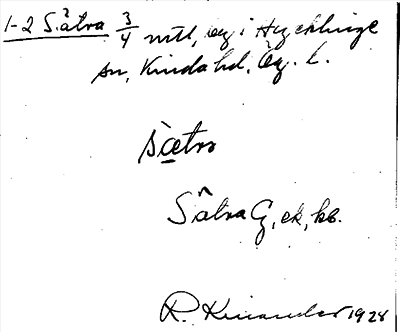 1-2 Sätra 3/4 mtl, by i Hycklinge
sn, Kinda hd, Ög. L.
sætra
Sätra G, ek, kb.
R. Kinander 1928